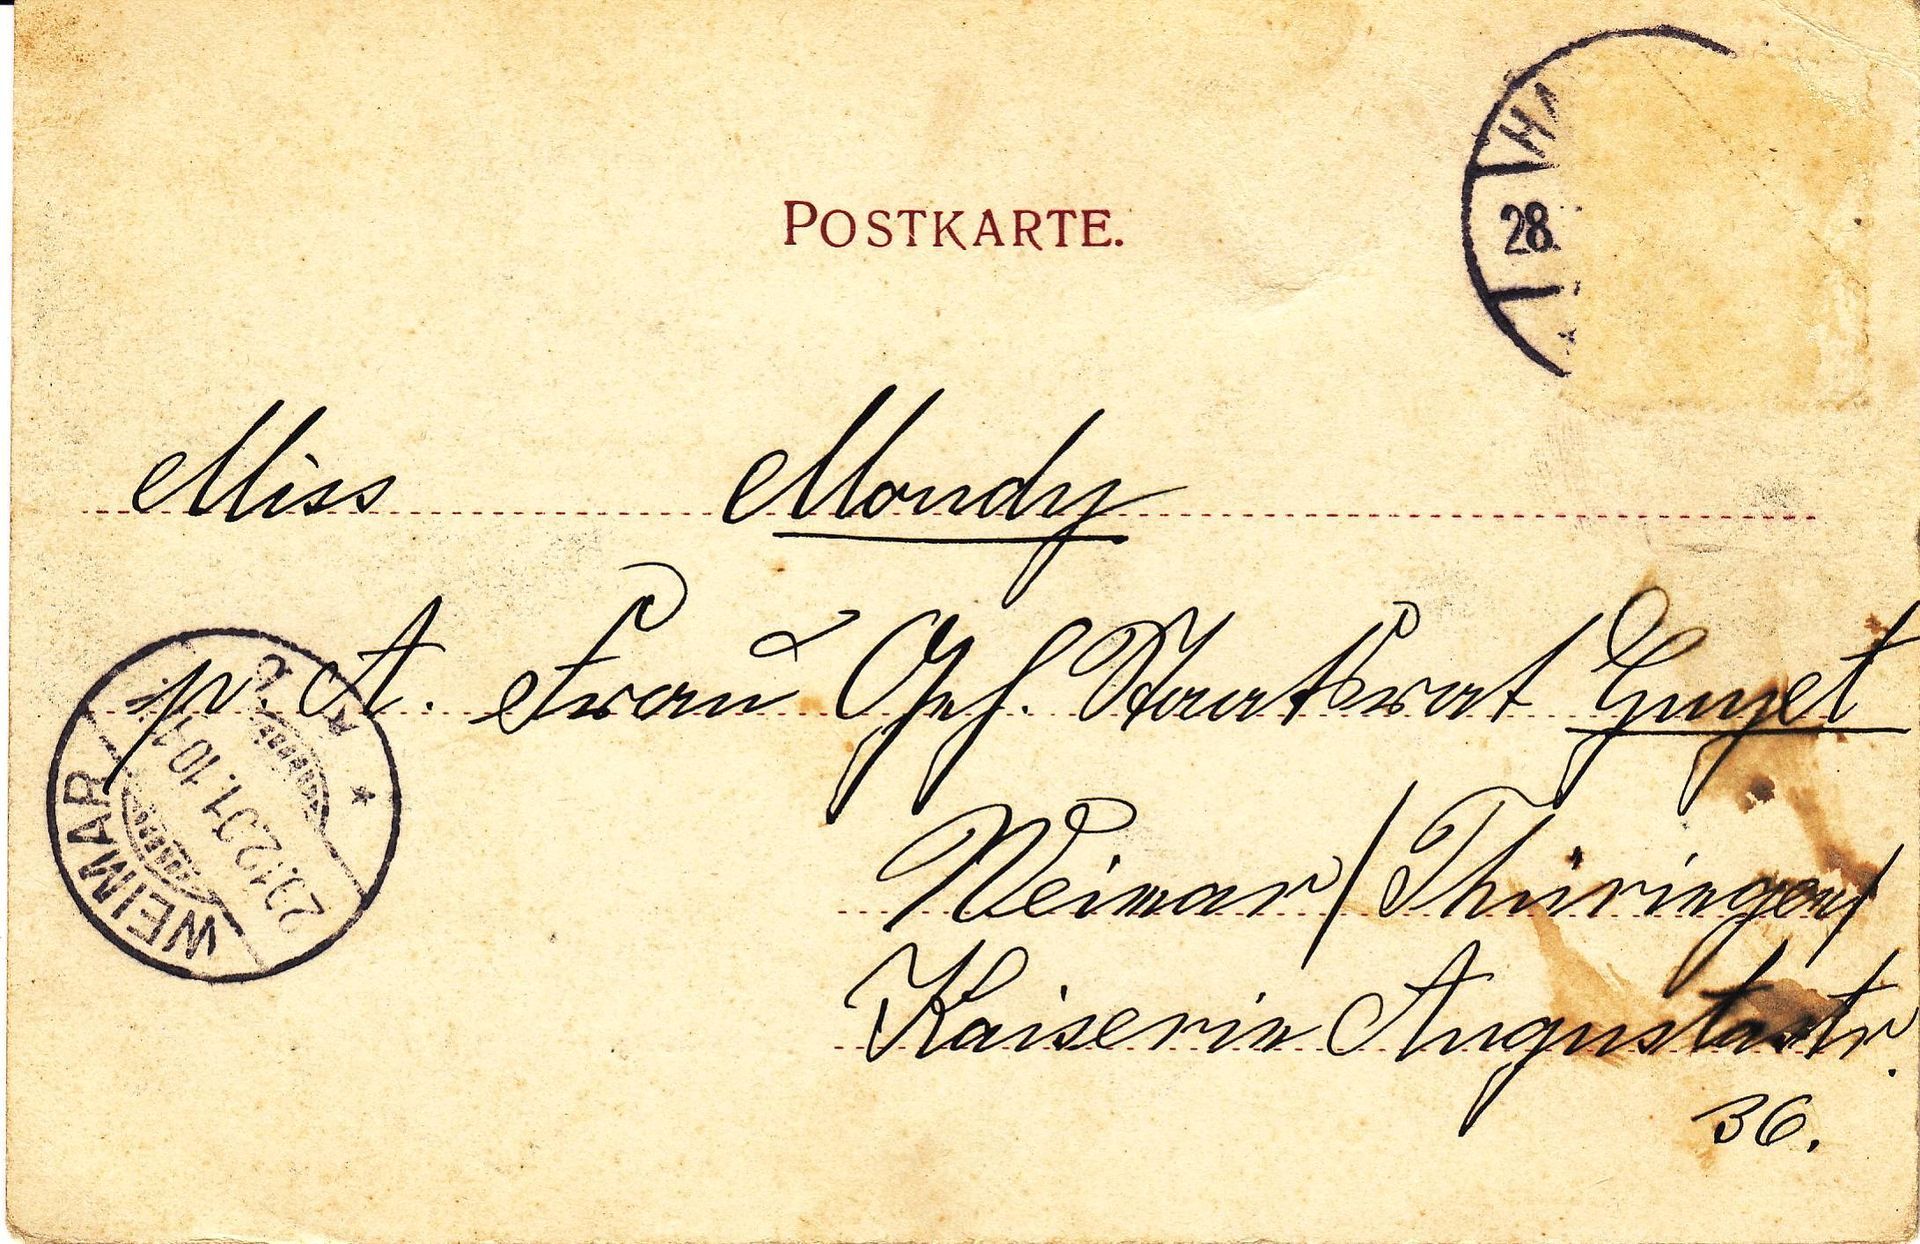 POSTKARTE.
HA
28.
Miss Mondy
p. A. Frau Geh. Staatsrat Guyet
Weimar /Thüringen/
Kaiserin Augustastr.
36.
WEIMAR
29.12.01. 10-11